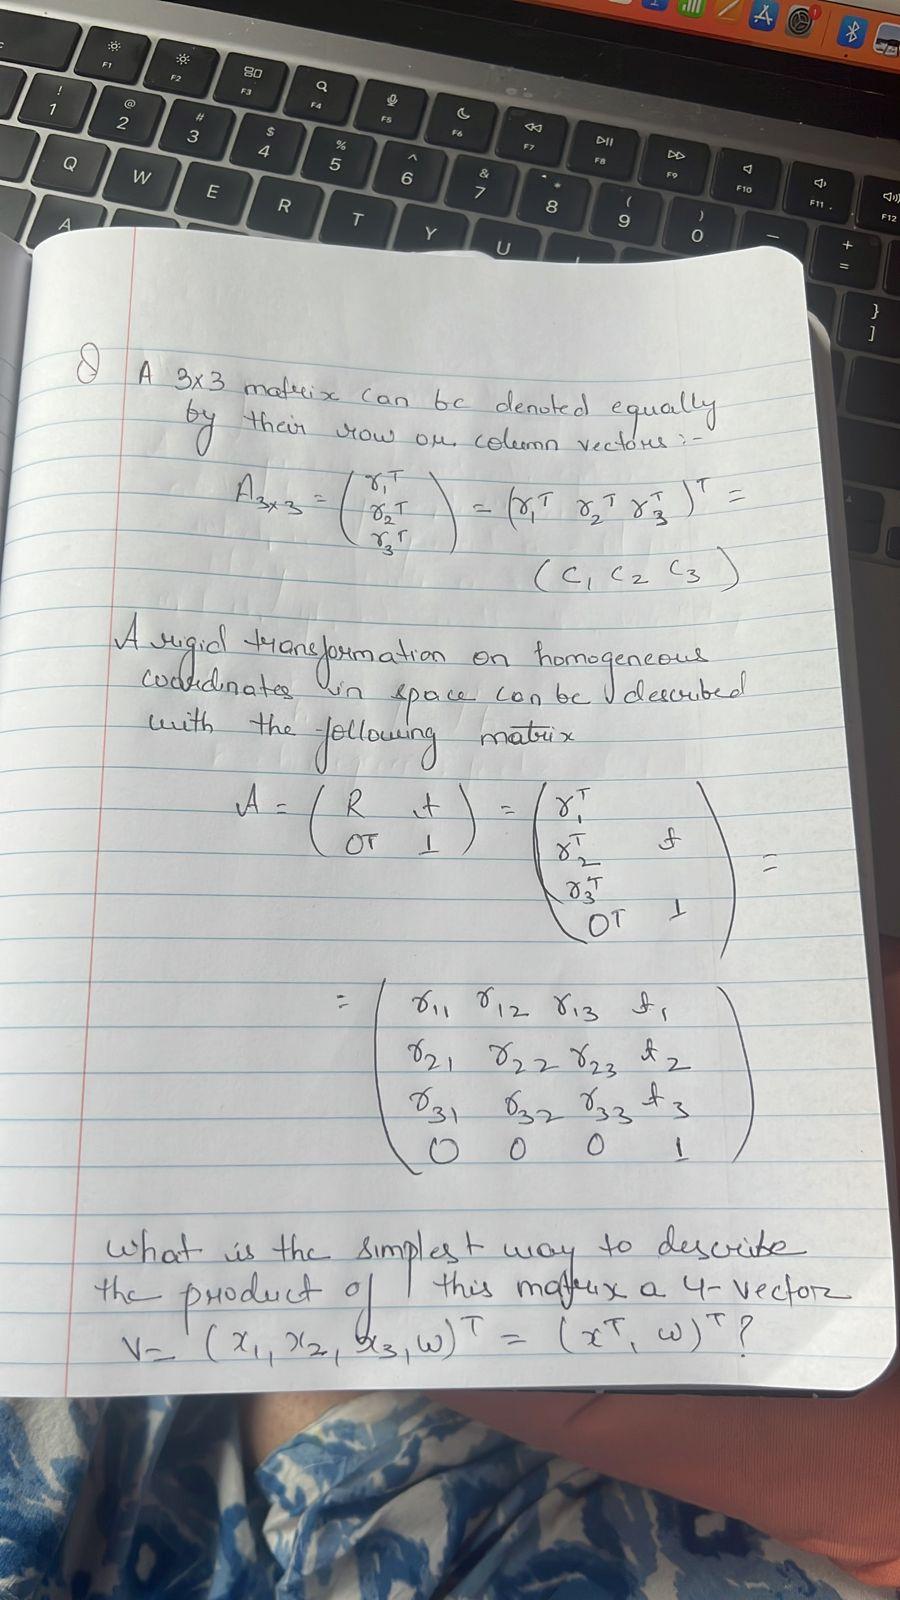 F1 F2 F3 F4 F5 F6 F7 F8 F9 F10 F11 F12
! 1 @ 2 # 3 $ 4 % 5 ^ 6 & 7 * 8 ( 9 ) 0 — + =
Q W E R T Y U } ]
A
Q A 3x3 matrix can be denoted equally
by their row or column vectors :-
A₃ₓ₃ = ( r₁ᵀ
r₂ᵀ
r₃ᵀ ) = (r₁ᵀ r₂ᵀ r₃ᵀ)ᵀ =
(C₁ C₂ C₃)
A rigid transformation on homogeneous
coordinates in space can be described
with the following matrix
A = ( R t
0ᵀ 1 ) = ( r₁ᵀ
r₂ᵀ t
r₃ᵀ
0ᵀ 1 ) =
= ( r₁₁ r₁₂ r₁₃ t₁
r₂₁ r₂₂ r₂₃ t₂
r₃₁ r₃₂ r₃₃ t₃
0 0 0 1 )
What is the simplest way to describe
the product of this matrix a 4-vector
V = (x₁, x₂, x₃, w)ᵀ = (xᵀ, w)ᵀ ?